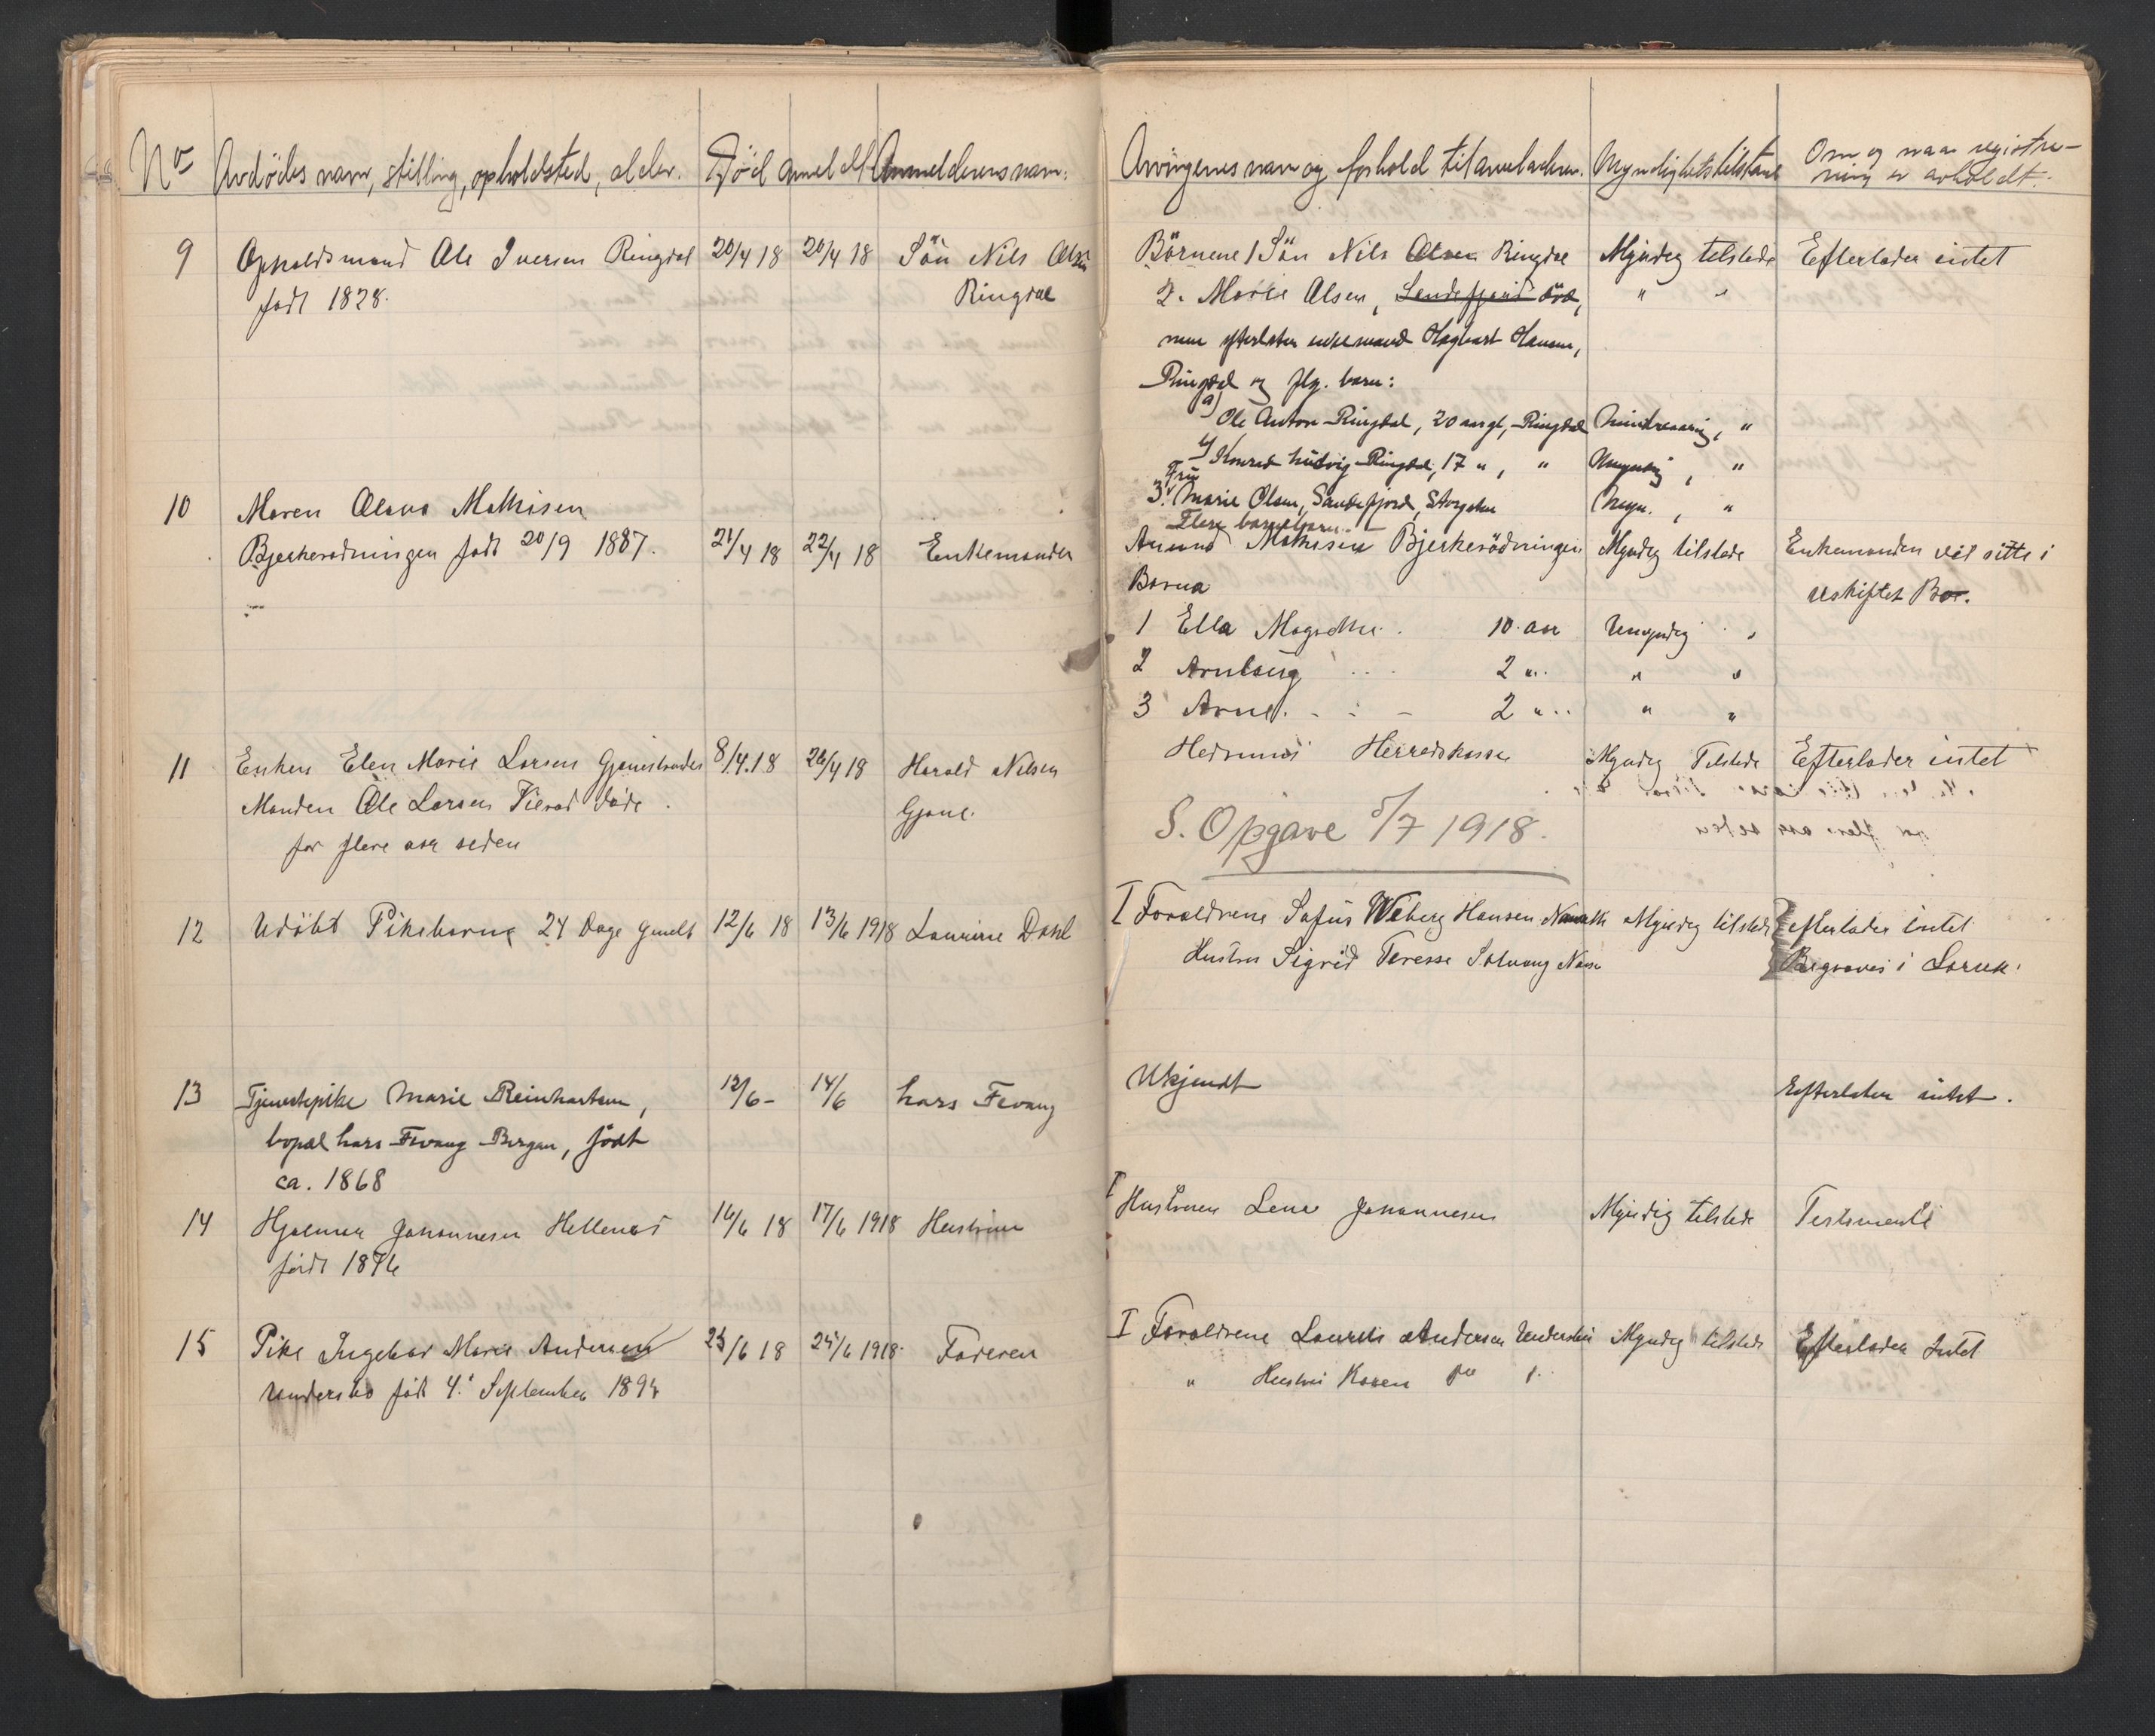 No Avdödes navn, stilling, opholdsted, alder. Död Anmeldt Anmelderens navn.
9 Opholdsmand Ole Iversen Ringdal 20/4 18 20/4 18 Sön Nils Olsen
født 1828. Ringdal
10 Maren Olava Mathisen
Bjerkerødningen født 20/9 1887. 21/4 18 22/4 18 Enkemanden
11 Enken Elen Marie Larsen Gjonestrander 8/4.18 26/4 18 Harald Nilsen
Manden Ole Larsen døde Gjone.
for flere aar siden
12 Udöbt Pikebarn 24 Dage gamelt 12/6 18 13/6 1918 Laurine Dahl
13 Tjenestepike Marie Reinhartsen, 12/6 - 14/6 Lars Fevang
bopæl Lars Fevang Bergan, født
ca. 1868
14 Hjalmar Johannesen Hellenes 16/6 18 17/6 1918 Hustruen
født 1876
15 Pike Ingebor Marie Andersen 23/6 18 25/6 1918 Faderen
Undersbo født 4. September 1894
Arvingenes navn og forhold til arveladeren. Myndighetstilstand Om og naar registre-
ring er avholdt.
Börnene 1 Sön Nils Olsen Ringdal Myndig tilstede Efterlader intet
2. Marie Olsen, Sandefjord død, " "
men efterlater enkemand Hagbart Hansen,
Ringdal og flg. barn:
a) Ole Anton Ringdal, 20 aar gl, Ringdal Mindreaarig, "
b) Konrad Ludvig Ringdal, 17 ", " Umyndig, "
Fru
3. Marie Olsen, Sandefjord, Storgaten Myn. , "
Flere barnebarn.
Amund Mathisen Bjerkerödningen Myndig tilstede Enkemanden vil sitte i
Barna uskiftet Bo.
1 Ella Magrethe. 10 aar Umyndig "
2 Arnbaug 2 " " "
3 Arne. - - - 2 " " "
Hedrums Herredskasse Myndig Tilstede Efterlader intet
S. Opgave 5/7 1918.
I Forældrene Sofus Weberg Hansen Myndig tilstede efterlader intet
Hustru Sigrid Terese Solvang Begraves i Larvik.
Ukjendt Efterlater intet.
I Hustruen Lena Johannesen Myndig tilstede Testamente
I Forældrene Laurits Andersen Undersbo Myndig tilstede Efterlader Intet
" Hustru Karen